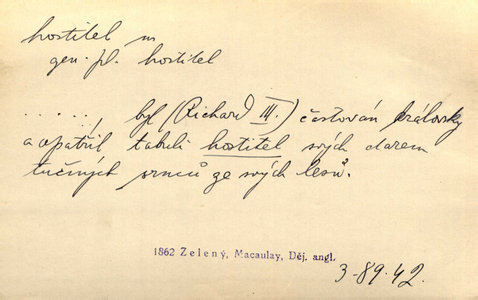 hostitel m
gen. pl. hostitel
......, byl (Richard III.) častován královsky
a opatřil tabuli hostitel svých darem
tučných srnců ze svých lesů.
1862 Zelený, Macaulay, Děj. angl.
3-89.42.